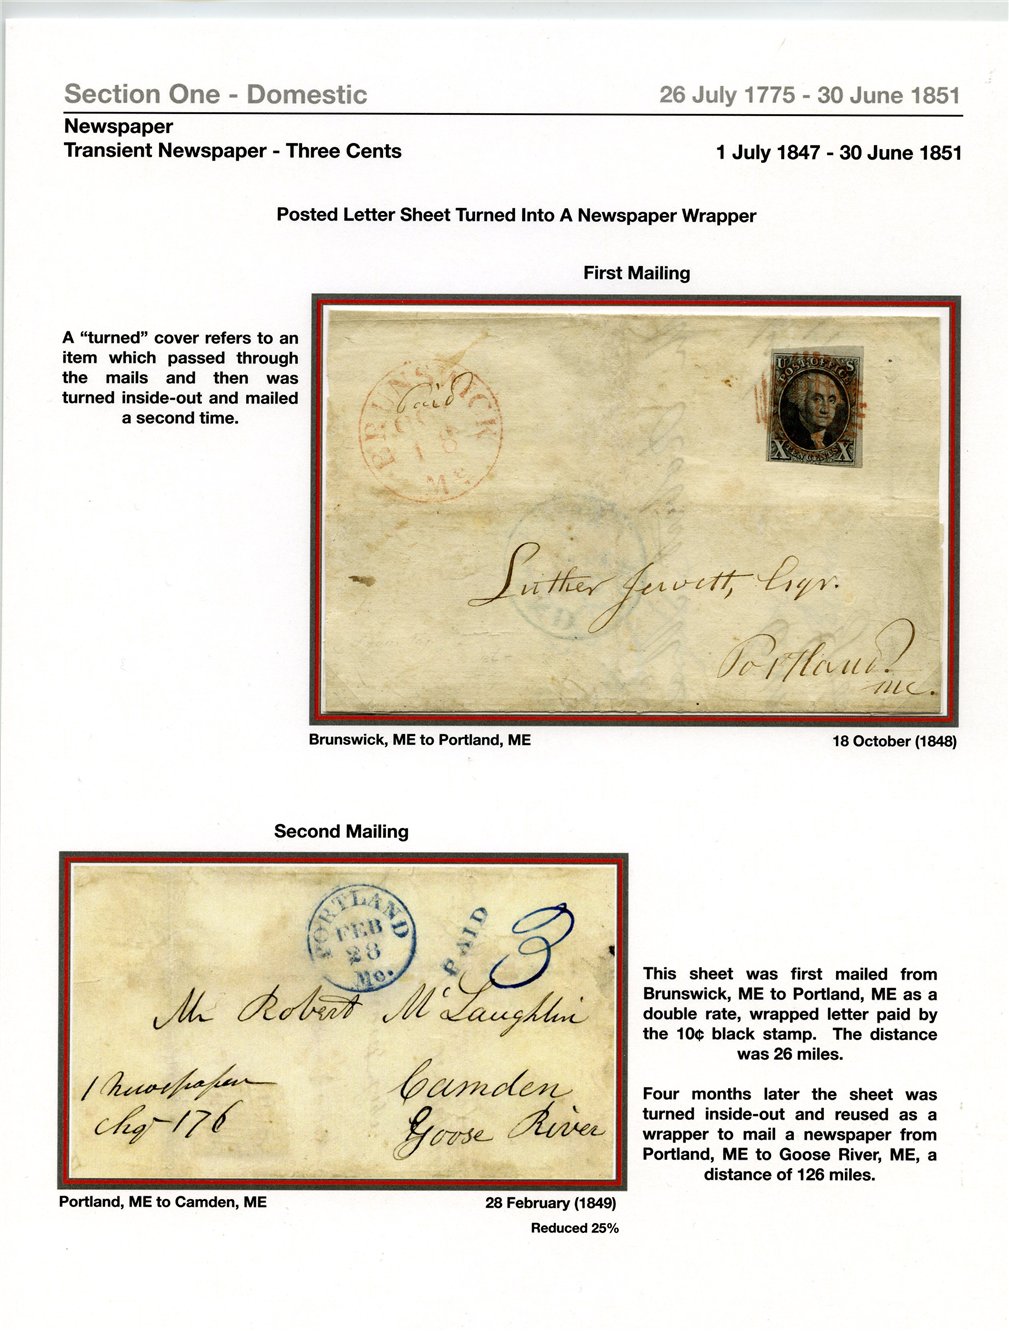 Section One - Domestic
26 July 1775 - 30 June 1851
Newspaper
Transient Newspaper - Three Cents
1 July 1847 - 30 June 1851
Posted Letter Sheet Turned Into A Newspaper Wrapper
First Mailing
A “turned” cover refers to an
item which passed through
the mails and then was
turned inside-out and mailed
a second time.
BRUNSWICK
Paid
18
Me.
U S
POST OFFICE
X TEN CENTS X
Luther Jewett, Esqr.
Portland.
Me.
Brunswick, ME to Portland, ME
18 October (1848)
Second Mailing
PORTLAND
FEB
28
Me.
PAID
3
Mr Robert McLaughlin
1 Newspaper
Camden
Chg 176
Goose River
Portland, ME to Camden, ME
28 February (1849)
Reduced 25%
This sheet was first mailed from
Brunswick, ME to Portland, ME as a
double rate, wrapped letter paid by
the 10¢ black stamp. The distance
was 26 miles.
Four months later the sheet was
turned inside-out and reused as a
wrapper to mail a newspaper from
Portland, ME to Goose River, ME, a
distance of 126 miles.